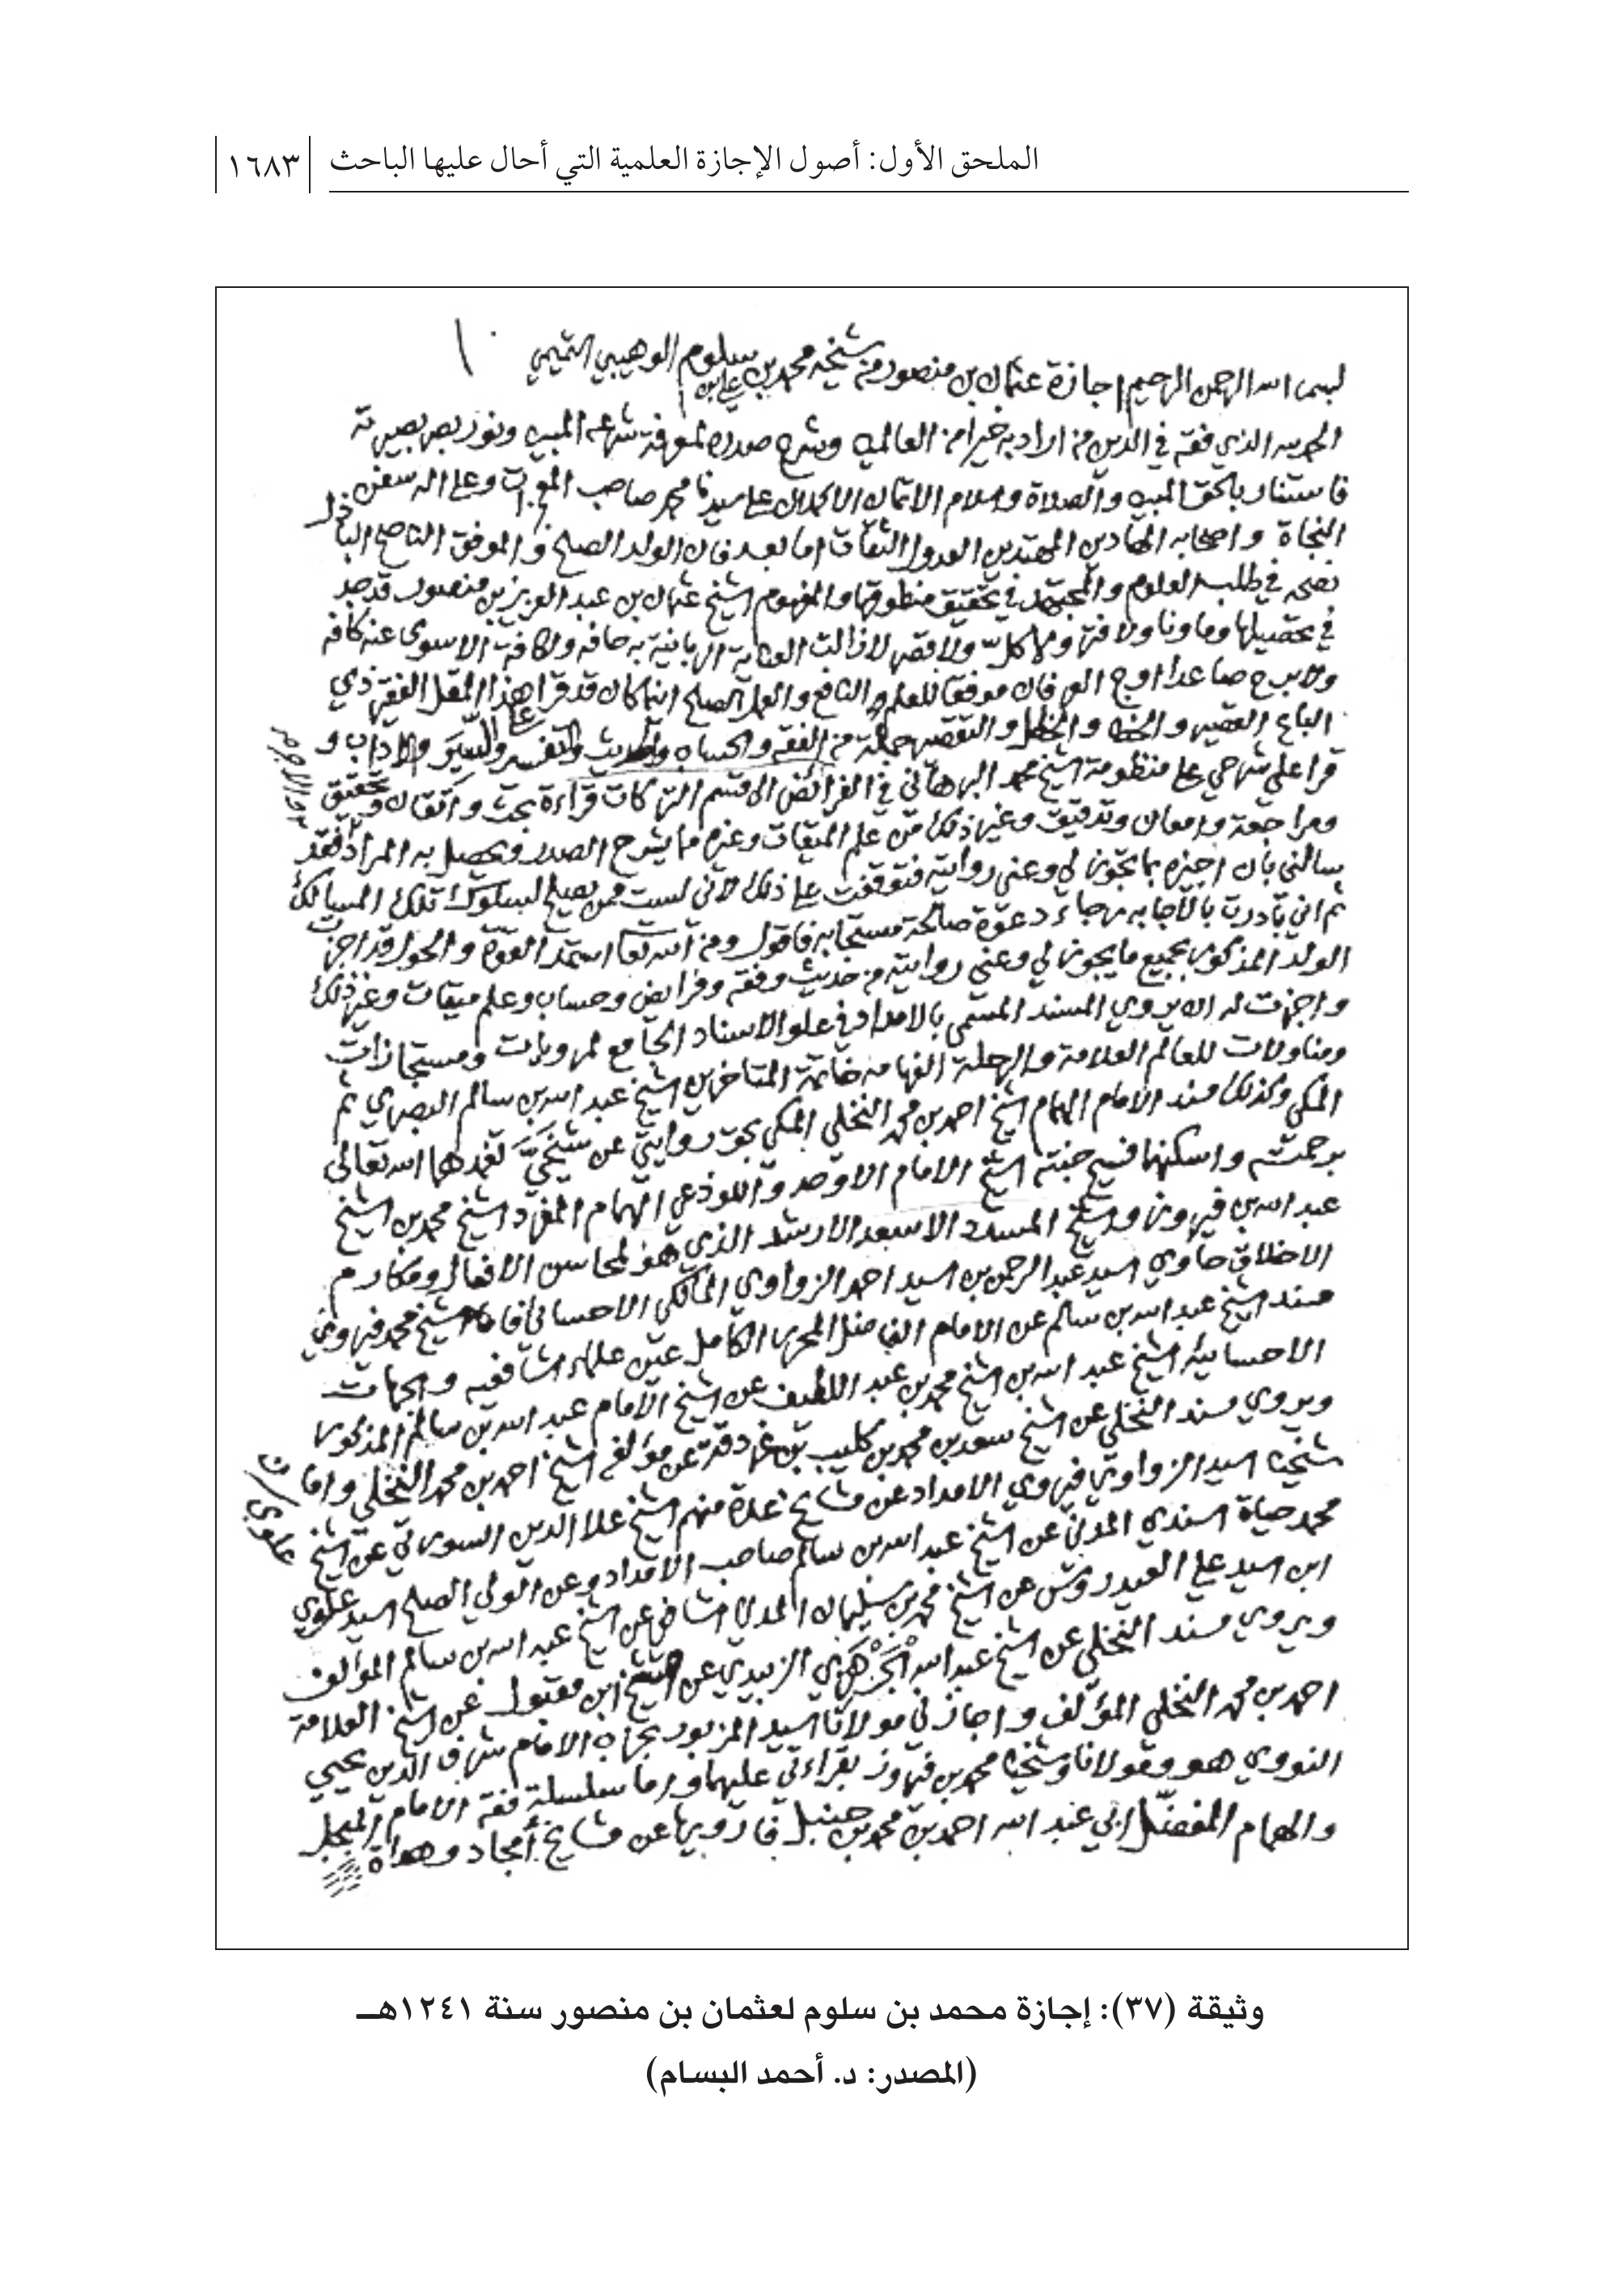 الملحق الأول: أصول الإجازة العلمية التي أحال عليها الباحث ١٦٨٣
بسم الله الرحمن الرحيم اجازة عثمان بن منصور من شيخه محمد بن علي بن سلوم الوهيبي التميمي
الحمد لله الذي فقه في الدين من اراد به خيرا من العالمين وشرح صدره لمعرفة شرعه المبين ونور بصر بصيرته
فاستنار بالحق المبين والصلاة والسلام الاتمان الاكملان على سيدنا محمد صاحب المعجزات وعلى اله سفن
النجاة واصحابه الهادين المهتدين العدول الثقات اما بعد فان الولد الصالح والموفق الناصح الباذل
نصحه في طلب العلوم والمجتهد في تحقيق منطوقها والمفهوم الشيخ عثمان بن عبد العزيز بن منصور قد جد
في تحصيلها وما ونا ولا فتر وما كلّ ولا قصر لا زالت العناية الربانية به حافه ولكافة الاسوى عنه كافه
ولا برح صاعدا اوج العرفان موفقا للعلم النافع والعمل الصالح انه كان قد قرا على هذا المقل الفقير ذي
الباع القصير والخطا والخطل والتقصير جملة من الفقه والحساب والحديث والتفسير والسير والاداب و
قرا علي شرحي على منظومة الشيخ محمد البرهاني في الفرائض الى قسم التركات قراءة بحث واتقان وتحقيق
ومراجعة وامعان وتدقيق وغير ذلك من علم الميقات وغيره مما يشرح الصدر ويحصل به المراد فقد
سالني بان اجيزه بما يجوز لي وعني روايته فتوقفت على ذلك لاني لست ممن يصلح لسلوك تلك المسالك
ثم اني بادرت بالاجابه رجاء دعوة صالحة مستجابه فاقول ومن الله تعالى استمد القوة والحول قد اجزت
الولد المذكور بجميع ما يجوز لي وعني روايته من حديث وفقه وفرايض وحساب وعلم ميقات وغير ذلك
واجزت له ان يروي المسند المسمى بالامداد في علو الاسناد الجامع لمرويات ومستجازات
ومناولات للعالم العلامة والرحلة الفهامه خاتمة المتاخرين الشيخ عبد الله بن سالم البصري ثم
المكي وكذلك مسند الامام الهمام الشيخ احمد بن محمد النخلي المكي بحق روايتي عن شيخيّ تغمدهما الله تعالى
برحمته واسكنهما فسيح جنته الشيخ الامام الاوحد واللوذعي الهمام المفرد الشيخ محمد بن الشيخ
عبد الله بن فيروز والشيخ المسدد الاسعد الارشد الذي هو لمحاسن الافعال ومكارم
الاخلاق حاوي السيد عبد الرحمن بن السيد احمد الزواوي المالكي الاحسائي فاما الشيخ محمد فيروي
مسند الشيخ عبد الله بن سالم عن الامام الفاضل المحرر الكامل عين علماء الشافعيه والجهات
الاحسائيه الشيخ عبد الله بن الشيخ محمد بن عبد اللطيف عن الشيخ الامام عبد الله بن سالم المذكور
ويروي مسند النخلي عن الشيخ سعد بن محمد بن كليب بن غردقة عن مؤلفه الشيخ احمد بن محمد النخلي واما
شيخنا السيد الزواوي فيروي الامداد عن مشايخ عدة منهم الشيخ علا الدين السورتي عن الشيخ
محمد حياة السندي المدني عن الشيخ عبد الله بن سالم صاحب الامداد وعن الولي الصالح السيد علوي
ابن السيد علي العيدروس عن الشيخ محمد بن سليمان المدني الشافعي عن الشيخ عبد الله بن سالم المؤلف
ويروي مسند النخلي عن الشيخ عبد الله الزبيدي عن الشيخ ابن مقبول عن الشيخ العلامة
احمد بن محمد النخلي المؤلف واجازني مولانا السيد المزبور الامام شرف الدين يحيى
النووي هو ومولانا وشيخنا محمد بن فيروز بقراءتي عليهما واما سلسلة فقه الامام المبجل
والهمام المفضّل ابي عبد الله احمد بن محمد بن حنبل فارويها عن مشايخ أمجاد وهداة
علوي
وثيقة (٣٧): إجازة محمد بن سلوم لعثمان بن منصور سنة ١٢٤١هــ
(المصدر: د. أحمد البسام)